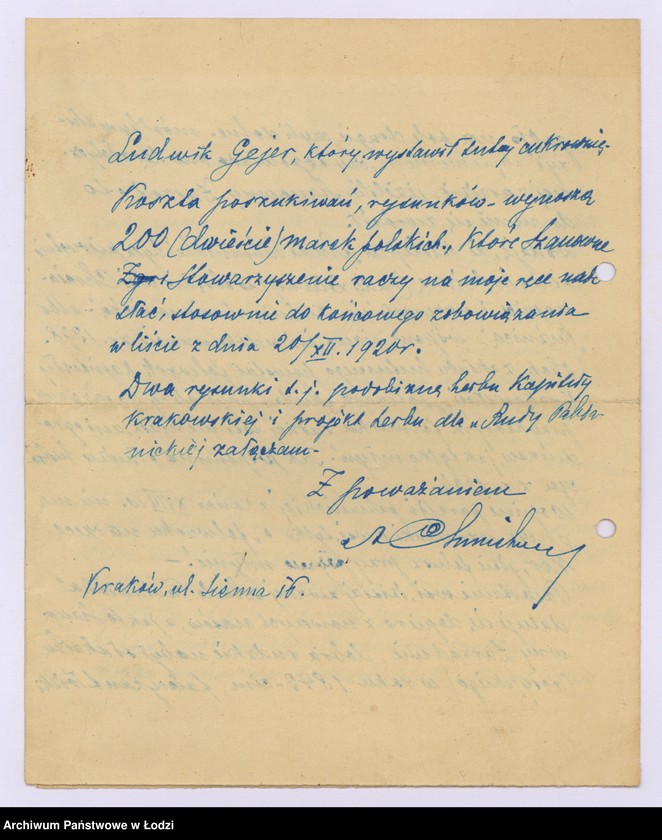 Ludwik Gejer, który wystawił tutaj cukrownię.
Koszta poszukiwań, rysunków - wynoszą
200 (dwieście) marek polskich, które Szanowne
Stowarzyszenie raczy na moje ręce nade-
słać, stosownie do końcowego zobowiązania
w liście z dnia 20/XII. 1920 r.
Dwa rysunki t. j. podobiznę herbu Kapituły
Krakowskiej i projekt herbu dla „Rudy Pabia-
nickiej załączam -
Z poważaniem
Kraków, ul. Sienna
Archiwum Państwowe w Łodzi